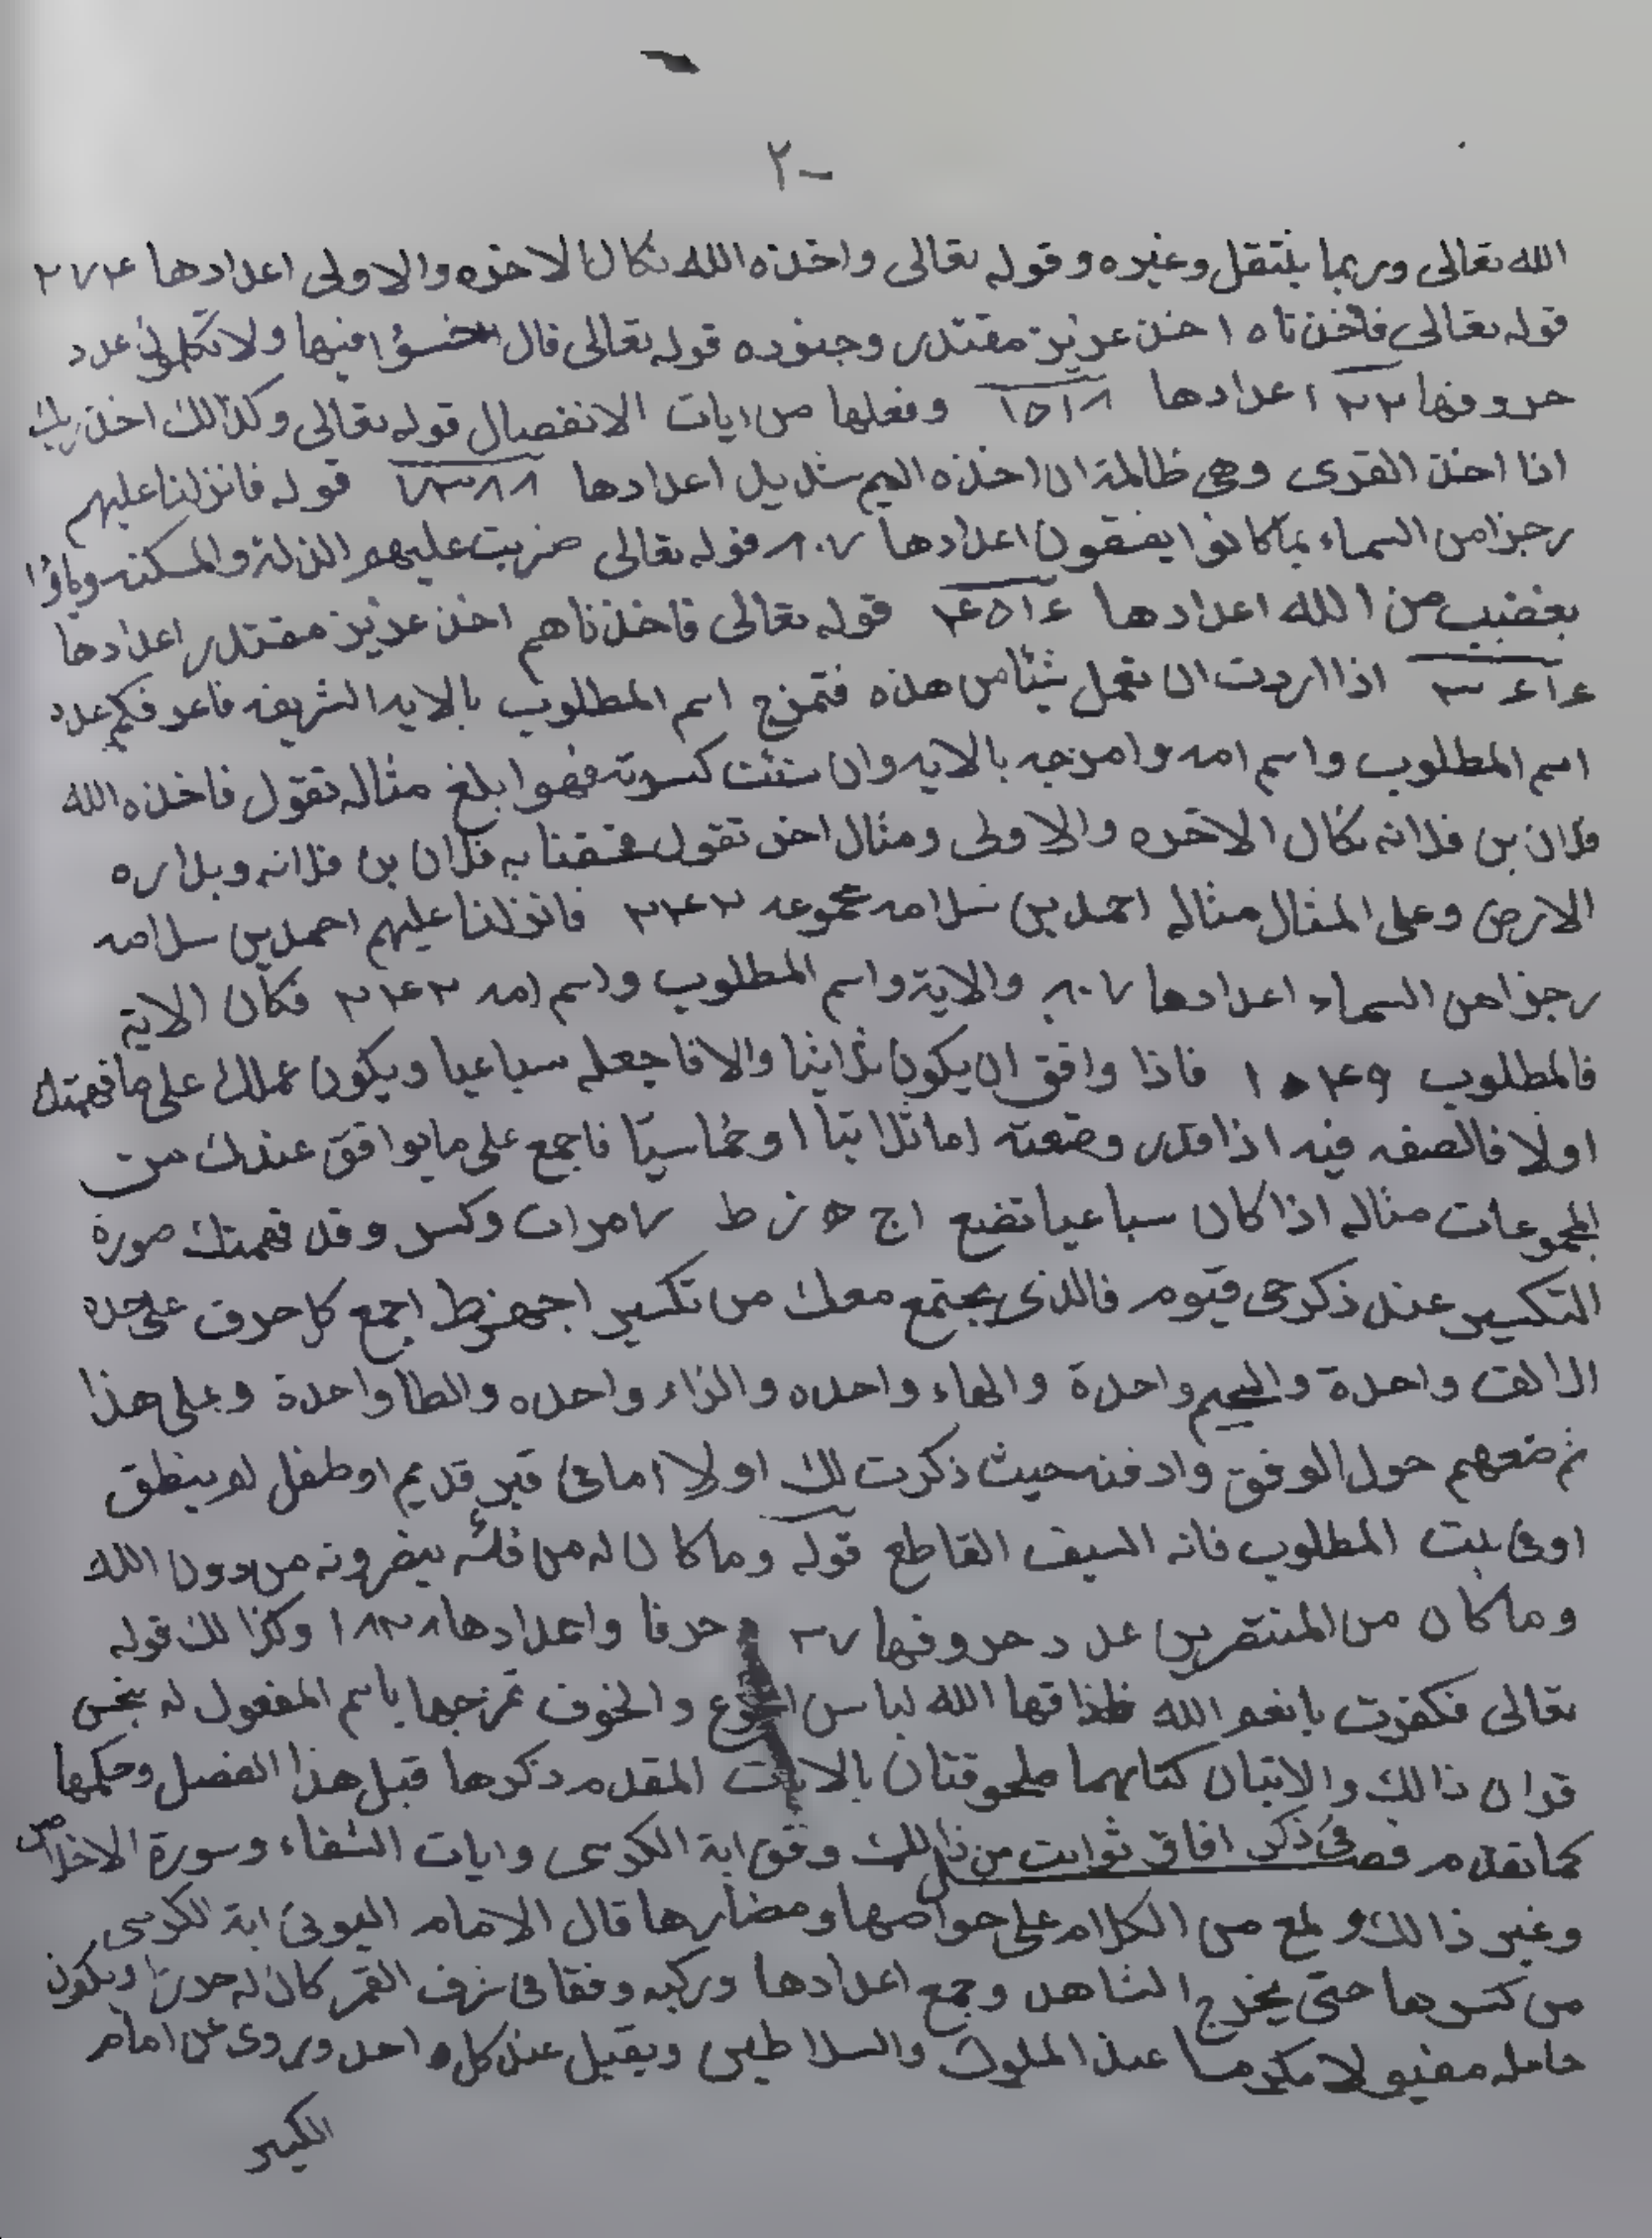 ٢٠
الله تعالى وربما ينتقل وغيره وقوله تعالى واخذه الله نكال الاخره والاولى اعدادها ٢٧٤
قوله تعالى فاخذناه اخذ عزيز مقتدر وجنوده قوله تعالى قال اخسؤا فيها ولا تكلمونى عدد
حروفها ٢٢ اعدادها ١٥١٨ وفعلها من ايات الانفصال قوله تعالى وكذالك اخذ ربك
اذا اخذ القرى وهى ظالمة ان اخذه اليم شديد اعدادها ٧٣٨٨ قوله فانزلنا عليهم
رجزا من السماء بما كانوا يفسقون اعدادها ٨٠٧ قوله تعالى ضربت عليهم الذلة والمسكنه وباؤا
بغضب من الله اعدادها ٤٥١٤ قوله تعالى فاخذناهم اخذ عزيز مقتدر اعدادها
٣٤١٤ اذا اردت ان تعمل شيئا من هذه فتمزج اسم المطلوب بالايه الشريفه فاعرف كم عدد
اسم المطلوب واسم امه وامزجه بالايه وان شئت كسرته فهوا بلغ مثاله تقول فاخذه الله
فلان بن فلانه نكال الاخره والاولى ومثال اخر تقول فخسفنا به فلان بن فلانه وبداره
الارض وعلى المثال مثاله احمد بن سلامه مجموعه ٢٤٢ فانزلنا عليهم احمد بن سلامه
رجزا من السماء اعدادها ٨٠٧ والاية واسم المطلوب واسم امه ٢٤٢ فكان الاية
فالمطلوب ١٠٤٩ فاذا وافق ان يكون والا فاجعله سباعيا ويكون عملك على ما فهمتك
اولا فالصفه فيه اذا قدر وضعته اما ثلاثيا او خماسيا فاجمع على ما يوافق عندك من
المجموعات مثاله اذا كان سباعيا تضع ا ج ه ز ط وكسر وقد فهمتك صورة
التكسير عند ذكر حى قيوم فالذى يجتمع معك من تكسير اجهزط اجمع كل حرف على حده
الالف واحدة والجيم واحدة والهاء واحده والزاء واحده والطا واحدة وعلى هذا
ثم ضعهم حول الوفق وادفنه حيث ذكرت لك اولا اما فى قبر قديم او طفل لم ينطق
اوفى بيت المطلوب فانه السيف القاطع قوله وما كان له من فئة ينصرونه من دون الله
وما كان من المنتصرين عدد حروفها ٣٧ حرفا واعدادها ١٨٣٨ وكذالك قوله
تعالى فكفرت بانعم الله فاذاقها الله لباس الجوع والخوف تمزجها باسم المفعول له
قران ذالك والايتان كتابهما ملحوقتان بالايات المقدم ذكرها قبل هذا الفصل وحكمها
كما تقدم فصل فى ذكر افاق ثوابت من ذالك وفق اية الكرسى وايات الشفاء وسورة الاخلاص
وغير ذالك ولمع من الكلام على خواصها ومضارها قال الامام البونى اية الكرسى
من كسرها حتى يخرج الشاهد وجمع اعدادها وركبه وفقا فى شرف القمر كان له حرزا ويكون
حامله مقبولا مكرما عند الملوك والسلاطين ويقبل عند كل احد ويروى عن امام
الكبير